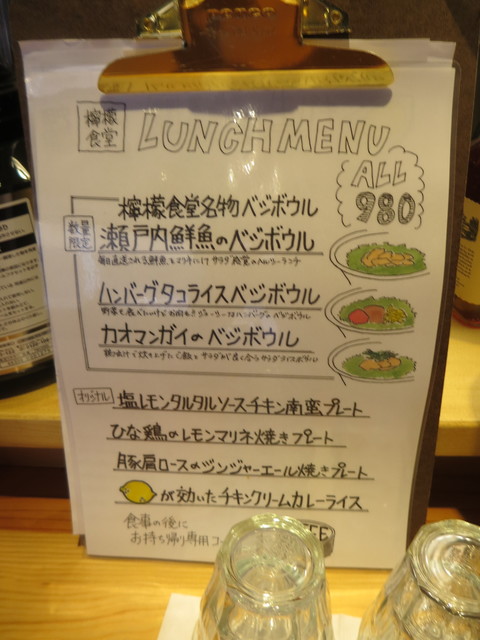 檸檬食堂
LUNCH MENU
ALL 980
檸檬食堂名物ベジボウル
数量限定
瀬戸内鮮魚のベジボウル
ハンバーグタコライスベジボウル
カオマンガイのベジボウル
オリジナル
塩レモンタルタルソースチキン南蛮プレート
ひな鶏のレモンマリネ焼きプレート
豚肩ロースのジンジャーエール焼きプレート
が効いたチキンクリームカレーライス
食事の後に
お持ち帰り専用コー